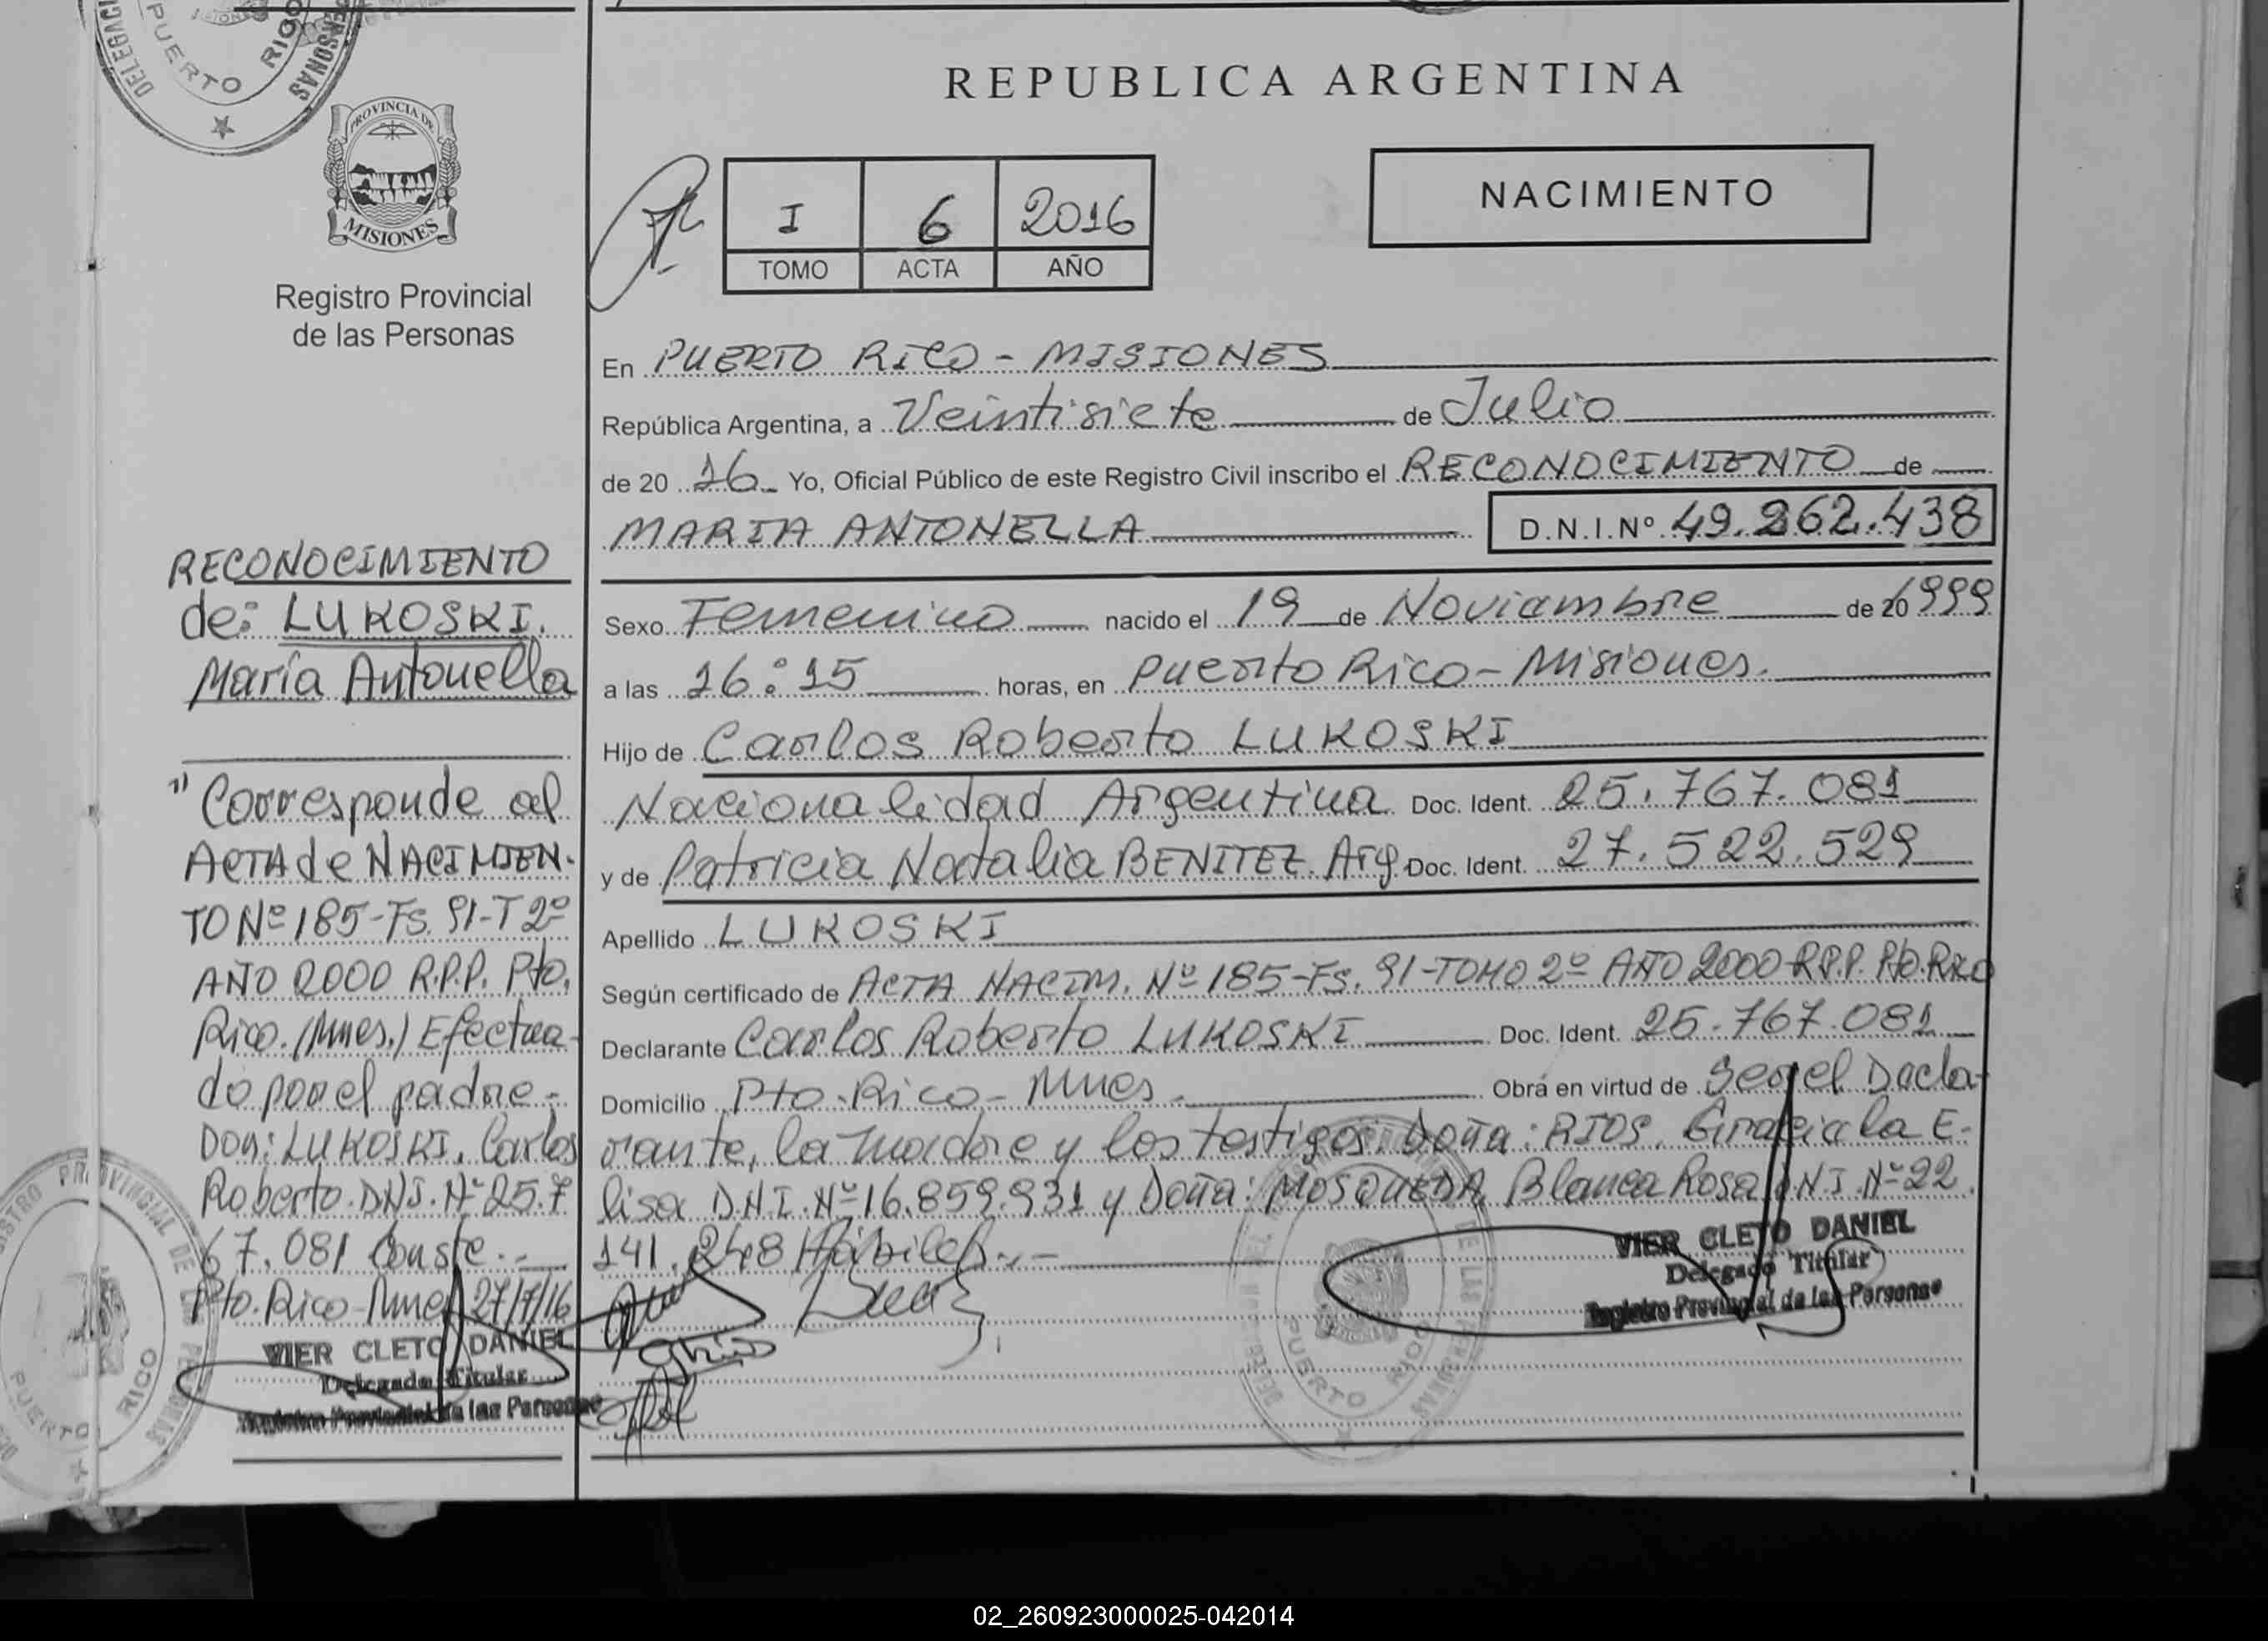 DELEGACI
PUERTO RICO
PERSONAS
PROVINCIA DE
MISIONES
Registro Provincial
de las Personas
RECONOCIMIENTO
de: LUKOSKI.
María Antonella
" Corresponde al
ACTA de NACIMIEN-
TO Nº 185-Fs. 91-T 2º
AÑO 2000 R.P.P. Pto.
Rico. (Mnes.) Efectua-
do por el padre-
Don: LUKOSKI, Carlos
Roberto. DNI. Nº 25.7
67.081 Conste.-
Pto. Rico-Mnes 27/7/16
VIER CLETO DANIEL
Delegado Titular
Registro Provincial de las Personas
REPUBLICA ARGENTINA
I 6 2016
TOMO ACTA AÑO
NACIMIENTO
En PUERTO RICO - MISIONES
República Argentina, a Veintisiete de Julio
de 20 16 Yo, Oficial Público de este Registro Civil inscribo el RECONOCIMIENTO de
MARIA ANTONELLA D.N.I.Nº 49.262.438
Sexo Femenino nacido el 19 de Noviembre de 20 1999
a las 16:15 horas, en Puerto Rico-Misiones.
Hijo de Carlos Roberto LUKOSKI
Nacionalidad Argentina Doc. Ident. 25.767.081
y de Patricia Natalia BENITEZ. Arg. Doc. Ident. 27.522.529
Apellido LUKOSKI
Según certificado de ACTA NACIM. Nº 185-Fs. 91-TOMO 2º AÑO 2000 R.P.P. Pto. Rico
Declarante Carlos Roberto LUKOSKI Doc. Ident. 25.767.081
Domicilio Pto. Rico - Mnes. Obra en virtud de Ser el Decla-
rante, la madre y los testigos: Doña: RIOS, Graciela E-
lisa D.N.I. Nº 16.859.931 y Doña: MOSQUEDA Blanca Rosa DNI. Nº 22.
141.248 Hábiles.-
VIER CLETO DANIEL
Delegado Titular
Registro Provincial de las Personas
PUERTO RICO
REGISTRO PROVINCIAL DE LAS PERSONAS
PUERTO RICO
02_260923000025-042014